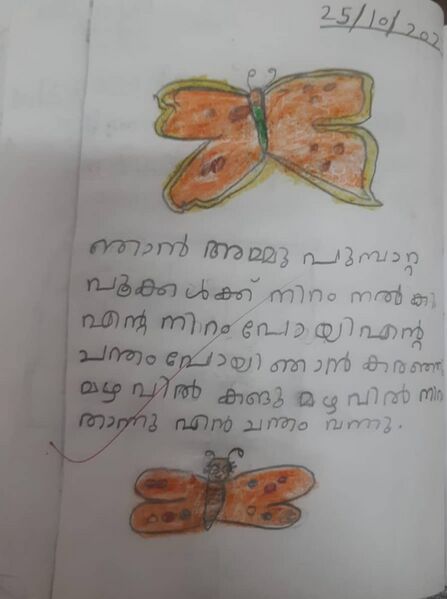 25/10/202
ഞാൻ അമ്മു പൂമ്പാറ്റ
പൂക്കൾക്ക് നിറം നൽകി
എന്റ നിറം പോയി എന്റ
ചന്തം പോയി ഞാൻ കരഞ്ഞു
മഴവിൽ കണ്ടു മഴവിൽ നിറ
താന്നു എൻ ചന്തം വന്നു.